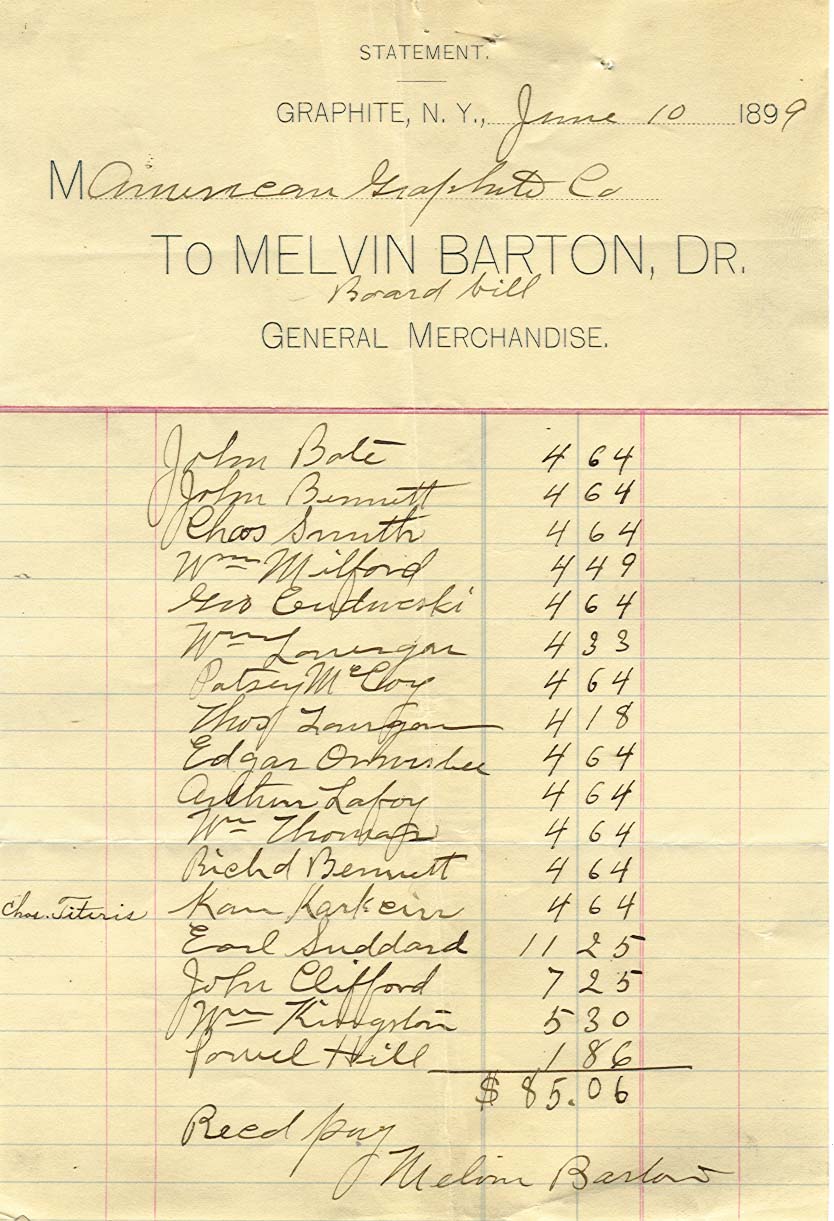 STATEMENT.
GRAPHITE, N. Y., June 10 1899
M American Graphite Co
To MELVIN BARTON, DR.
Board bill
GENERAL MERCHANDISE.
John Bate 4 64
John Bennett 4 64
Chas Smith 4 64
Wm Milford 4 49
Geo 4 64
Wm Lonergan 4 33
Patsey McCoy 4 64
Thos 4 18
Edgar Ormsbee 4 64
Arthur Lafoy 4 64
Wm Thomas 4 64
Richd Bennett 4 64
Chas. Titeris Kan Karkein 4 64
Earl Suddard 11 25
John Clifford 7 25
Wm Kingston 5 30
Hill 1 86
$ 85.06
Recd pay
Melvin Barton